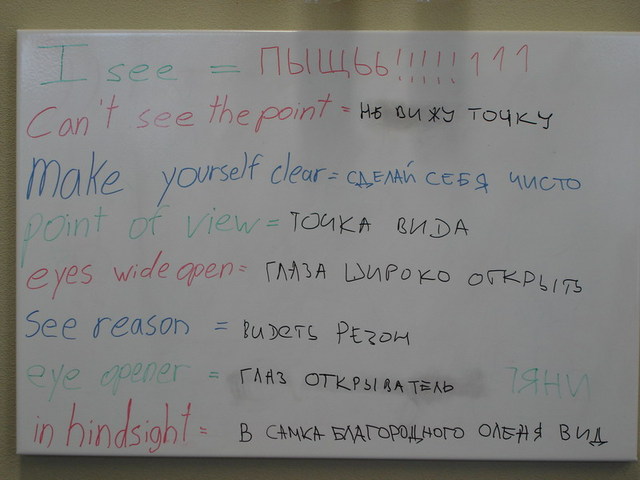 I see = ПЫЩЬЬ!!!!!!111
Can't see the point = НЕ ВИЖУ ТОЧКУ
make yourself clear = СДЕЛАЙ СЕБЯ ЧИСТО
point of view = ТОЧКА ВИДА
eyes wide open = ГЛАЗА ШИРОКО ОТКРЫТЬ
see reason = ВИДЕТЬ РЕЗОН
eye opener = ГЛАЗ ОТКРЫВАТЕЛЬ
in hindsight = В САМКА БЛАГОРОДНОГО ОЛЕНЯ ВИД